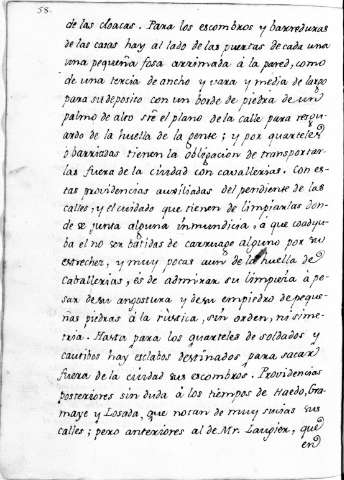 58.
de las cloacas. Para los escombros y barreduras
de las casas hay al lado de las puertas de cada una
una pequeña fosa arrimada à la pared, como
de una tercia de ancho y vara y media de largo
para su deposito con un borde de piedra de un
palmo de alto sre el plano de la calle para resgu-
ardo de la huella de la gente; y por quarteles
ò barriadas tienen la obligacion de transportar-
las fuera de la ciudad con cavallerias. Con es-
tas providencias auxiliadas del pendiente de las
calles, y el cuidado que tienen de limpiarlas don-
de se junta alguna inmundicia, à que coadyu-
ba el no ser batidas de carruage alguno por su
estrechez, y muy pocas aun de la huella de
Caballerias, es de admirar su limpieza à pe-
sar de su angostura y de su empiedro de peque-
ñas piedras à la rustica, sin orden, ni sime-
tria. Hasta para los quarteles de soldados y
cautibos hay esclabos destinados para sacar
fuera de la ciudad sus escombros. Providencias
posteriores sin duda à los tiempos de Haedo, Gra-
maye y Losada, que notan de muy sucias sus
calles; pero anteriores al de Mr. Laugier, que
en